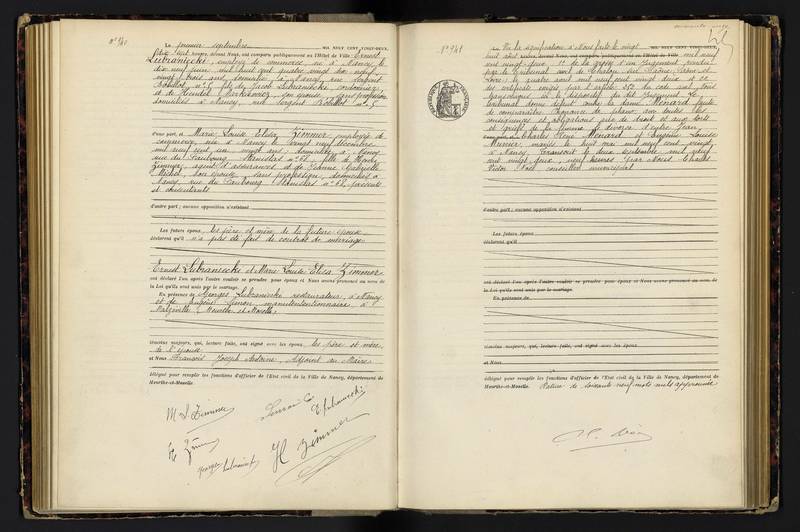 n° 940
Le premier septembre MIL NEUF CENT VINGT-DEUX,
heures, devant Nous, ont comparu publiquement en l'Hôtel de Ville Ernest
Lubraniecki, employé de commerce, né à Nancy, le
dix neuf juin mil huit cent quatre vingt dix neuf,
vingt trois ans, domicilié à Nancy, rue Sergent
Blandan n° 5, fils de Jacob Lubraniecki, cordonnier,
et de son épouse, sans profession
domiciliés à Nancy, rue Sergent n° 5
d'une part, et Marie Louise Elisa Zimmer, employée de
née à Nancy le vingt neuf décembre
mil neuf cent un, vingt ans, domiciliée à Nancy
rue du Faubourg Stanislas n° 68, fille de Henri
Zimmer, agent d'assurances et de Jeanne Gabrielle
Michel, son épouse, sans profession, domiciliés à
Nancy, rue du Faubourg Stanislas n° 68, présents
et consentants
d'autre part ; aucune opposition n'existant
Les futurs époux, les père et mère de la future épouse
déclarent qu'il n'a pas été fait de contrat de mariage
Ernest Lubraniecki et Marie Louise Elisa Zimmer
ont déclaré l'un après l'autre vouloir se prendre pour époux et Nous avons prononcé au nom de
la Loi qu'ils sont unis par le mariage.
En présence de Georges Lubraniecki restaurateur, à Nancy
et de Eugène Simon, manutentionnaire, à
Malzéville Meurthe et Moselle,
témoins majeurs, qui, lecture faite, ont signé avec les époux, les père et mère,
de l'épouse
et Nous François Joseph Antoine, Adjoint au Maire
délégué pour remplir les fonctions d'officier de l'État civil de la Ville de Nancy, département de
Meurthe-et-Moselle.
M L Zimmer
Simon E
E Lubraniecki
H Zimmer
Georges Lubraniecki
n° 941
Vu la signification à Nous faite le vingt MIL NEUF CENT VINGT-DEUX,
huit août heures, devant Nous, ont comparu publiquement en l'Hôtel de Ville mil neuf
cent vingt deux 1° de la grosse d'un jugement rendu
par le Tribunal civil de Chalon sur Saône, Saône et
Loire, le quatre août mil neuf cent vingt deux et 2°
des certificats exigés par l'article 252 du code civil, Nous
transcrivons ici le dispositif du dit jugement : Le
tribunal donne défaut contre la dame Ménard faute
de comparaître, prononce de plano, avec toutes les
conséquences et obligations de droit et aux torts
et griefs de la femme le divorce d'entre Jean
Charles René Ménard et Eugénie Louise
Munier, mariés le huit mai mil neuf cent vingt
à Nancy. Transcrit le deux septembre mil neuf
cent vingt deux, neuf heures par Nous Charles
Victor conseiller municipal
d'autre part ; aucune opposition n'existant
Les futurs époux
déclarent qu'il
ont déclaré l'un après l'autre vouloir se prendre pour époux et Nous avons prononcé au nom de
la Loi qu'ils sont unis par le mariage.
En présence de
témoins majeurs, qui, lecture faite, ont signé avec les époux,
et Nous
délégué pour remplir les fonctions d'officier de l'État civil de la Ville de Nancy, département de
Meurthe-et-Moselle. Rature de soixante neuf mots nuls approuvée